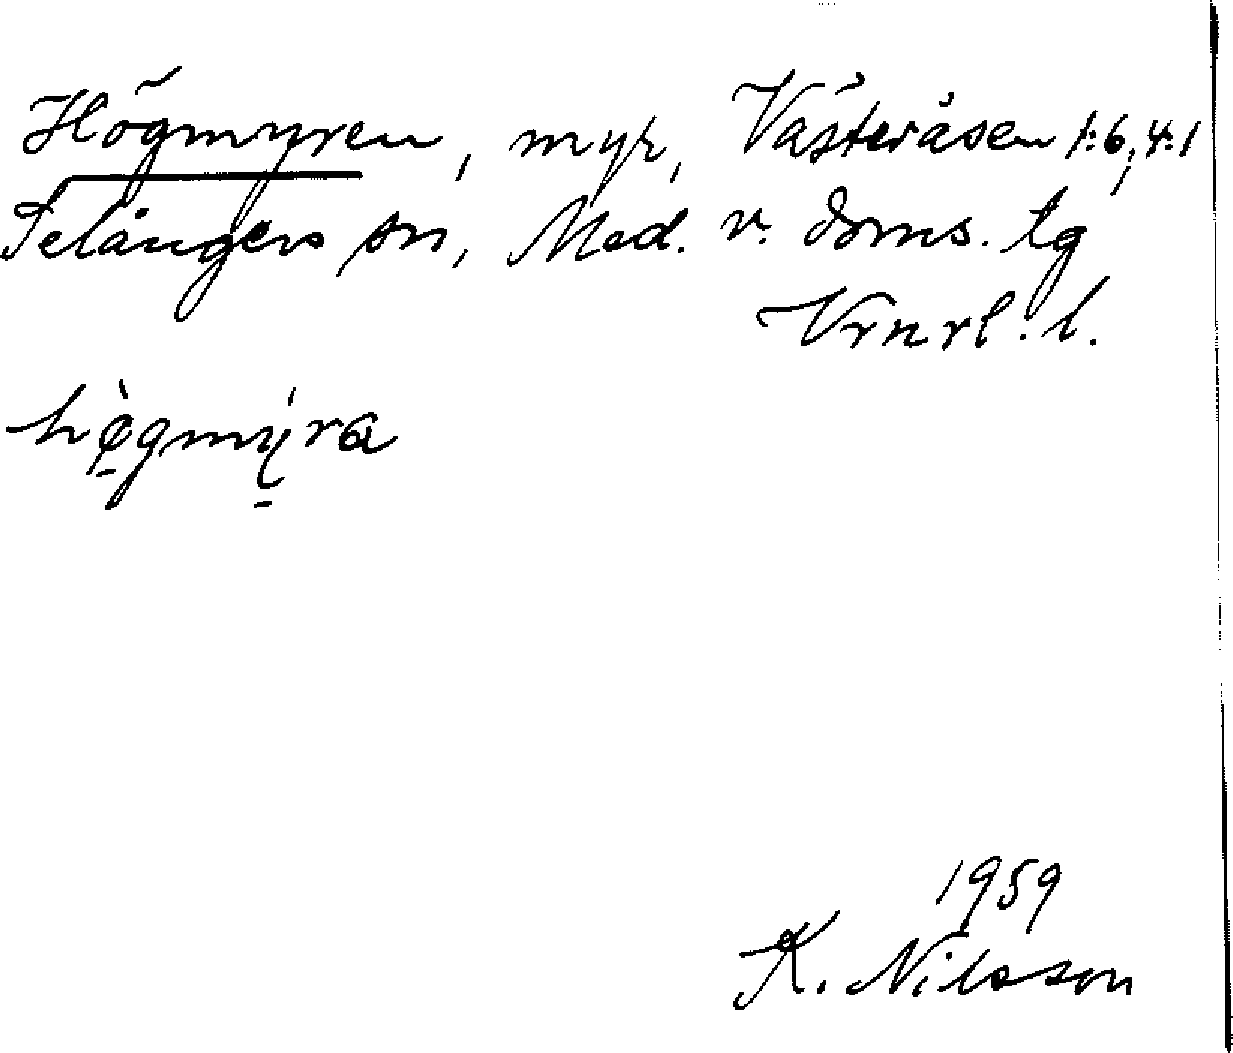 Högmyren, myr, Västeråsen 1:6, 4:1
Selångers sn, Med. v. doms. tg
Vrnrl. l.
hø̀gmý̱ra
1959
K. Nilsson